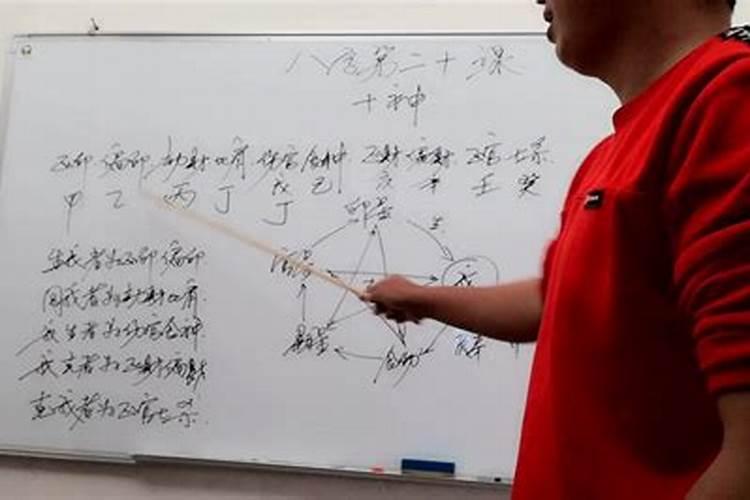 八字第二十课
十神
正印 偏印 劫财 比肩 伤官 食神 正财 偏财 正官 七杀
甲 乙 丙 丁 戊 己 庚 辛 壬 癸
丁
印星 生
官星 我
财星 食伤
生我者为正印偏印
同我者为劫财比肩
我生者为伤官食神
我克者为正财偏财
克我者为正官七杀